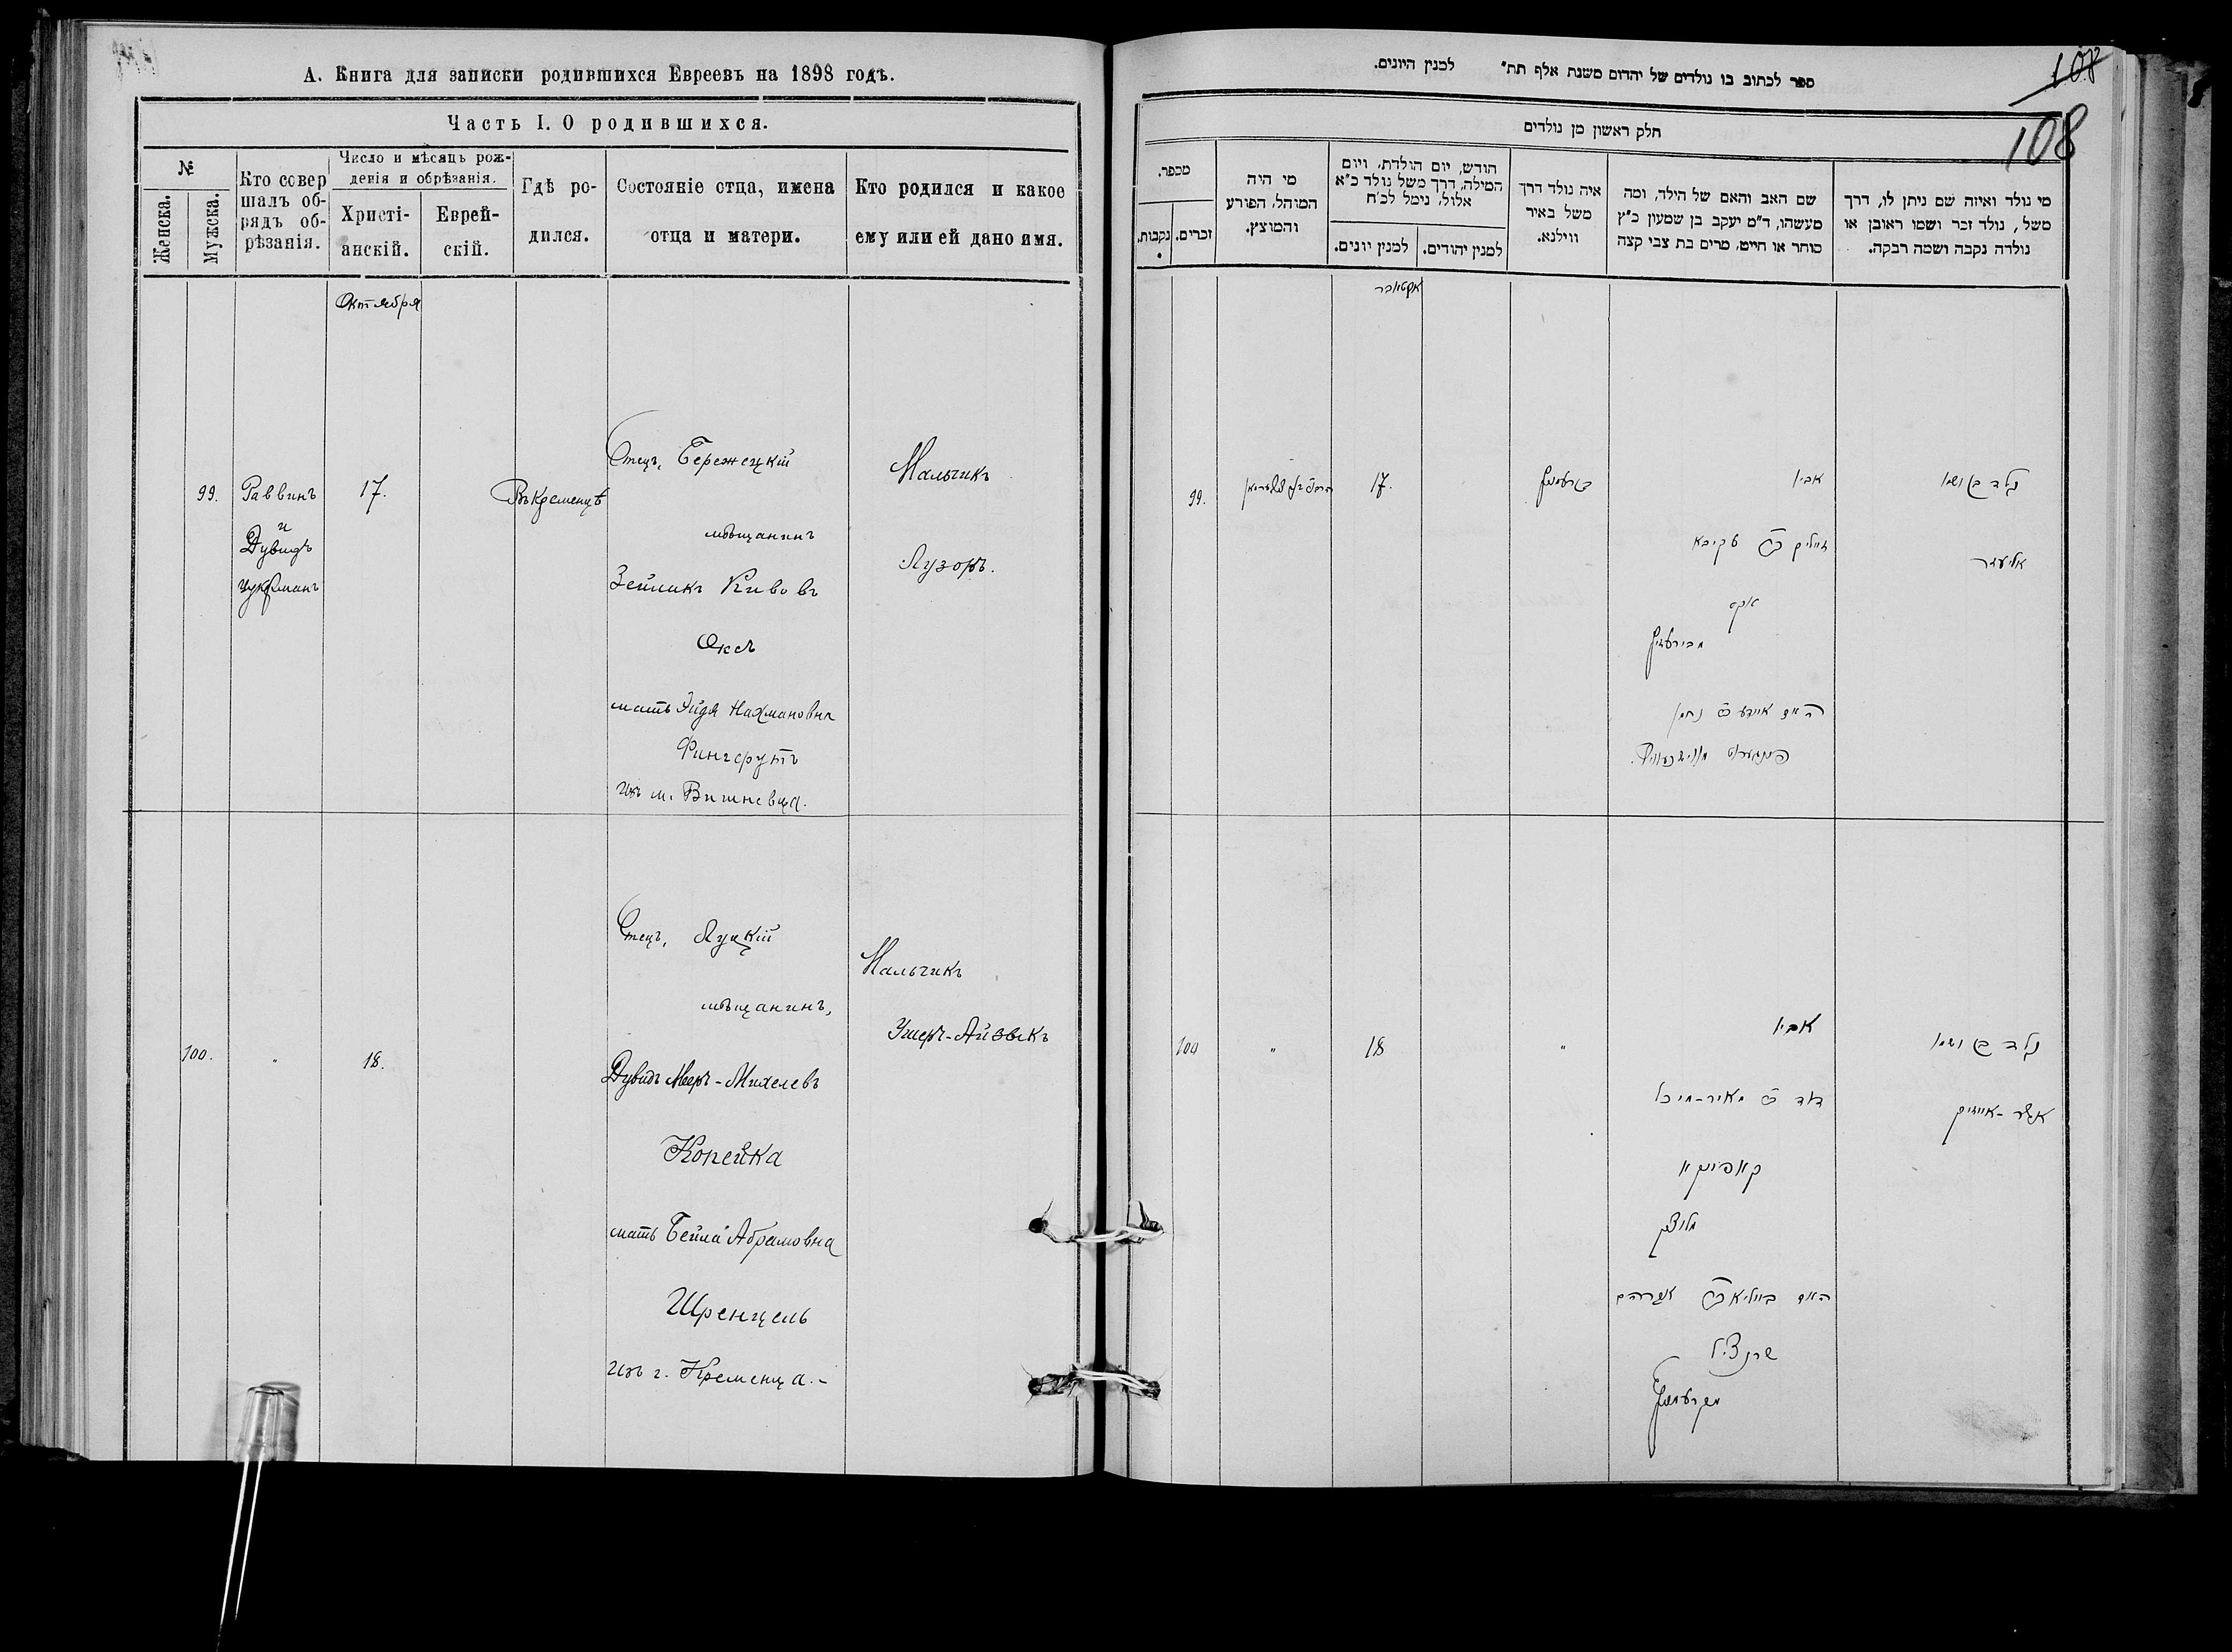 А. Книга для записки родившихся Евреевъ на 1898 годъ.
Часть I. О родившихся.
№
Женска.
Мужска.
Кто совер
шалъ об-
рядъ об-
рѣзанія.
Число и мѣсяцъ рож-
денія и обрѣзанія.
Христі-
анскій.
Еврей-
скій.
Гдѣ ро-
дился.
Состояніе отца, имена
отца и матери.
Кто родился и какое
ему или ей дано имя.
Октября
99.
Раввинъ
и
Дувидъ
Цукрманъ
17.
Въ Кременцѣ
Отецъ, Бережецкій
мѣщанинъ
Зейликъ Кивовъ
Оксъ
мать Эйдя Нахмановна
Фингерутъ
изъ м. Вишневца.
Мальчикъ
Лузоръ.
100.
"
18.
Отецъ, Луцкій
мѣщанинъ,
Дувидъ Меер-Михелевъ
Копейка
мать Бейла Абрамовна
Шренцель
изъ г. Кременца.-
Мальчикъ
Ушеръ-Айзыкъ
108
108
ספר לכתוב בו נולדים של יהדום משנת אלף תת״ למנין היונים.
חלק ראשון מן נולדים
מספר.
נקבות.
זכרים.
מי היה
המוהל, הפורע
והמוצץ.
חודש, יום הולדת, ויום
המילה, דרך משל נולד כ״א
אלול, נימל לכ״ח
למנין יונים.
למנין יהודים.
איה נולד דרך
משל באיר
ווילנא.
שם האב והאם של הילד, ומה
מעשהו, ד״מ יעקב בן שמעון כ״ץ
סוחר או חייט, מרים בת צבי קצה
מי נולד ואיזה שם ניתן לו, דרך
משל, נולד זכר ושמו ראובן או
נולדה נקבה ושמה רבקה.
אקטאבר
99.
17.
אביו
זייליק ב״ר עקיבא
אקס
האם איידע ב״ר נחמן
פינגערוט
נולד בן ושמו
אליעזר
100
"
18
"
אביו
דוד ב״ר מאיר-מיכל
קאפייקא
מלוצק
האם ביילא ב״ר אברהם
שרנציל
מקרעמעניץ
נולד בן ושמו
אשר-אייזיק